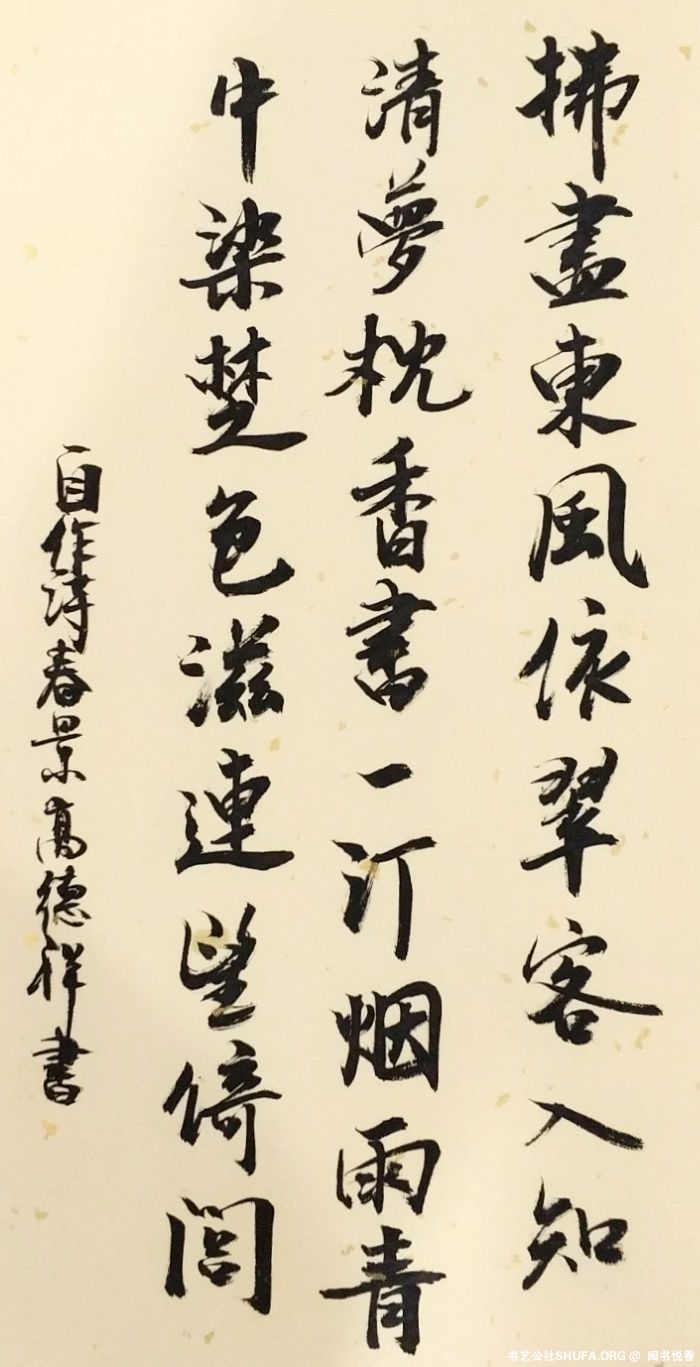 拂盡東風依翠客入知
清夢枕香書一汀烟雨青
中染楚色滋連望倚閭
自作詩春景高德祥書
书艺公社SHUFA.ORG @ 阅书悦香